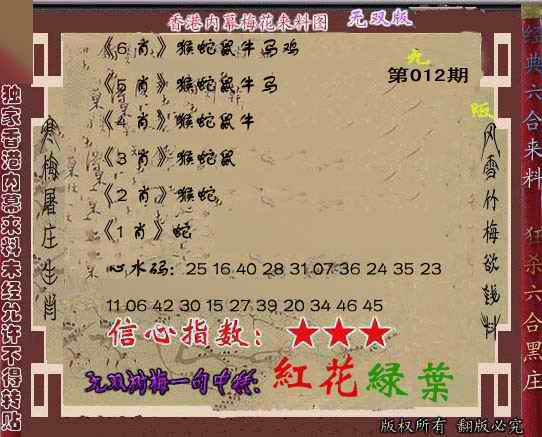 香港内幕梅花来料图 无双版
《6 肖》猴蛇鼠牛马鸡
九
第012期
《5 肖》猴蛇鼠牛马
版
《4 肖》猴蛇鼠牛
《3 肖》猴蛇鼠
《2 肖》猴蛇
《1 肖》蛇
心水码：25 16 40 28 31 07 36 24 35 23
11 06 42 30 15 27 39 20 34 46 45
信心指数：★★★
紅花綠葉
版权所有 翻版必究
独家香港内幕来料未经允许不得转贴
寒梅屠庄生肖
风雪竹梅欲钱料
经典六合来料
狂杀六合黑庄